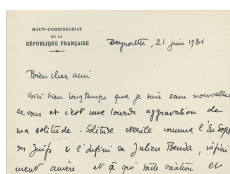 HAUT-COMMISSARIAT
DE LA
RÉPUBLIQUE FRANÇAISE
Beyrouth, 21 juin 1931
Bien cher ami
Voici bien longtemps que je suis sans nouvelles
de vous et c'est une lourde aggravation de
ma solitude. Solitude comme
et l'infini de Julien Benda,
ment amère et qui toute créature et